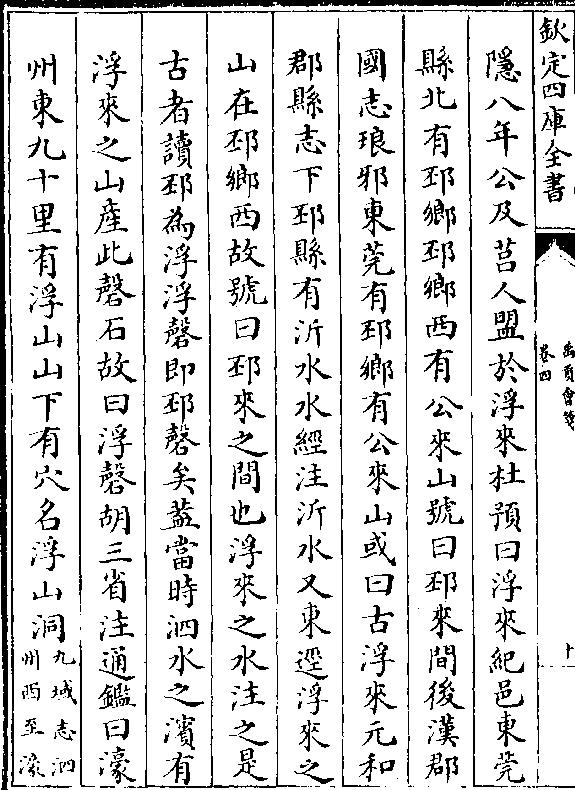 欽定四庫全書
禹貢會箋
卷四
十
隱八年公及莒人盟於浮來杜預曰浮來紀邑東莞
縣北有邳鄉邳鄉西有公來山號曰邳來間後漢郡
國志琅邪東莞有邳鄉有公來山或曰古浮來元和
郡縣志下邳縣有沂水水經注沂水又東逕浮來之
山在邳鄉西故號曰邳來之間也浮來之水注之是
古者讀邳為浮浮磬即邳磬矣葢當時泗水之濱有
浮來之山產此磬石故曰浮磬胡三省注通鑑曰濠
州東九十里有浮山山下有穴名浮山洞九域志泗
州西至濠